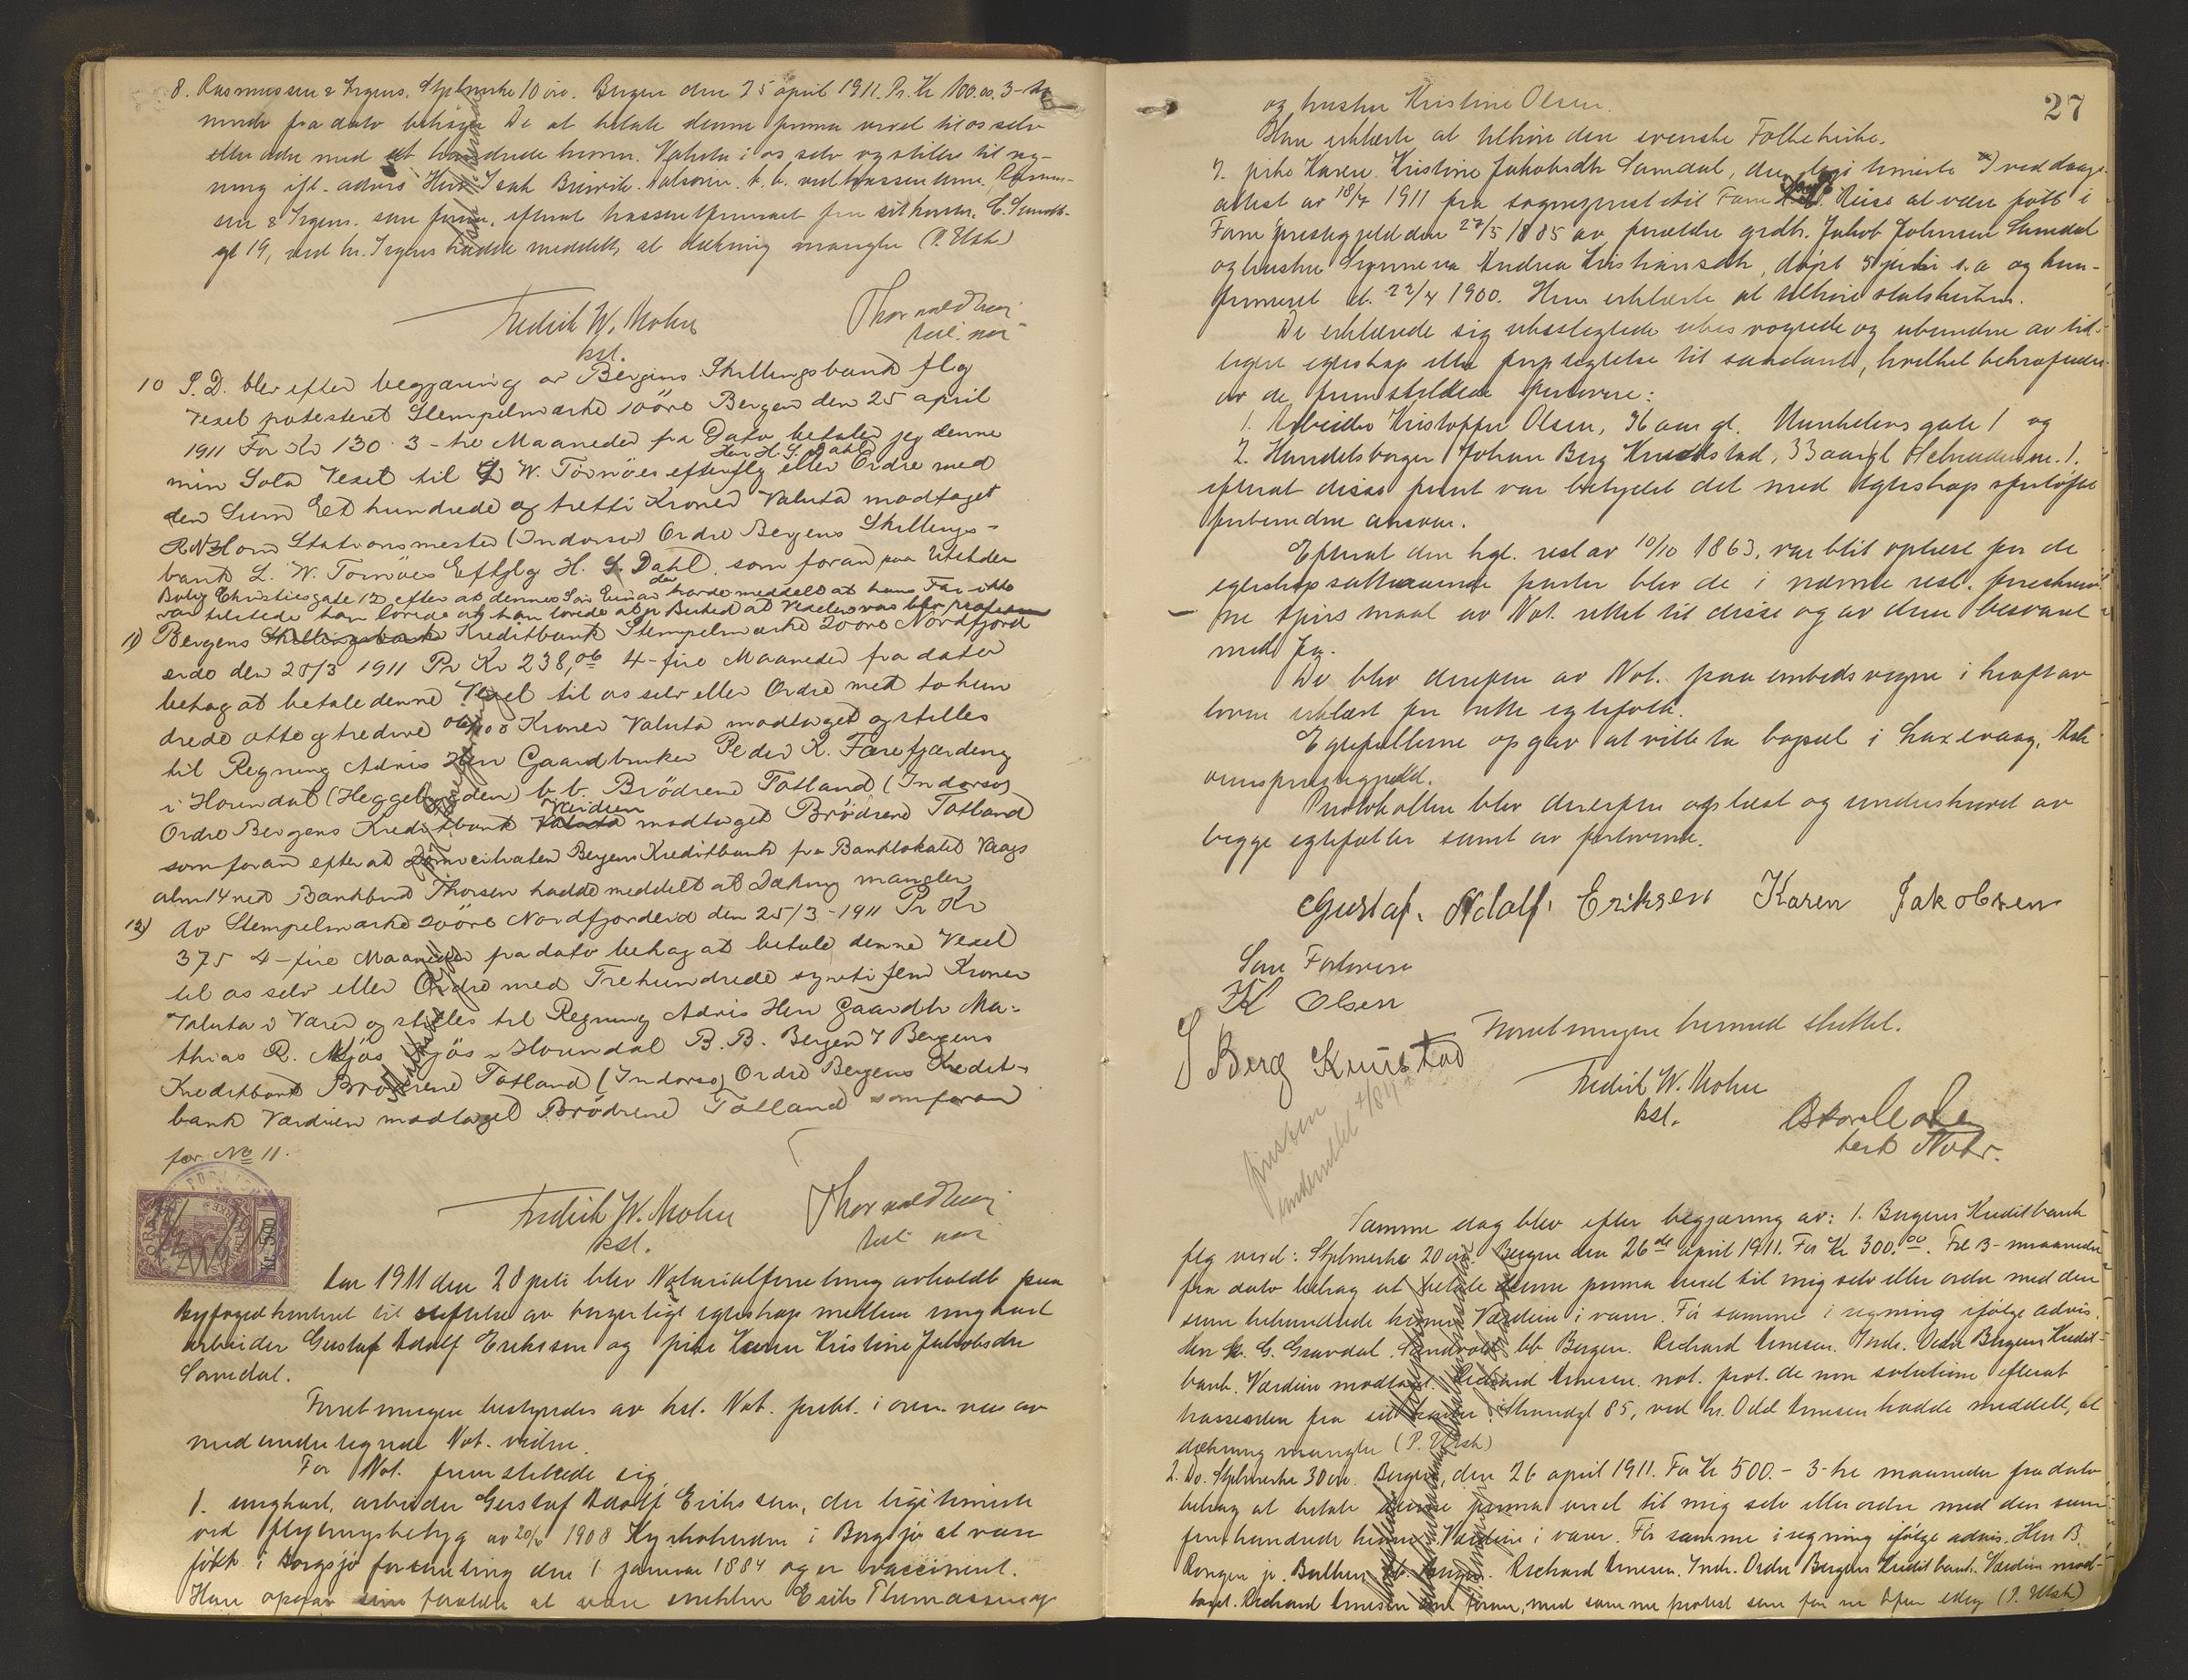 8. Rasmussen & Irgens. Stplmerke 10 øre. Bergen den 25 april 1911. Pr. Kr 100.00. 3-tre
mndr fra dato behager De at betale denne prima vexel til os selv
eller ordre med et hundrede kroner. Valuta i os selv og stilles til reg-
ning ifl. advis Herr Isak
sen & Irgens. som foran, efterat trassent firmaet fra sit kontor, C. Sundts-
gt 19, ved hr. Irgens hadde meddelt, at dækning mangler (P. Utsk)
Fredrik W. Mohn
kst.
10 S.D. blev efter begjæring av Bergens Skillingsbank flg
Vexel protesteret Stempelmærke 10 öre Bergen den 25 april
1911 For Kr 130. 3-tre Maaneder fra Dato betaler jeg denne
Herr H. S. Dahl
min Sola Vexel til L W. Tornöes efterflg eller Ordre med
den Sum Et hundrede og tretti Kroner Valuta modtaget
R N Horn Stationsmester (Indorso) Ordre Bergens Skillings-
bank L. W. Tornöes Eftflg H. S. Dahl. som foran paa Utstederens
Bolig Christiesgate 12 efter at dennes Sön Einar havde meddelt at hans Far ikke
var tilstede han lovede at gi Besked at Vexelen var blev
11) Bergens Skillingsbank Kreditbank Stempelmerke 20 öre Nordfjord
eide den 25/3 1911 Pr Kr 238,06 4-fire Maaneder fra dato
behag at betale denne Vexel til os selv eller Ordre med to hun
drede otte og tredive 06/100 Kroner Valuta modtaget og stilles
til Regning Advis Herr Gaardbruker Peder K. Færefjærding
i Horndal (Heggebygden) b. b. Brödrene Totland (Indorso)
Værdien
Ordre Bergens Kreditbank Valuta modtaget Brödrene Totland
som foran efter at Domiciliaten Bergens Kreditbank fra Banklokalet Vaags
alm 14 ved Bankbud Thorsen hadde meddelt at Dækning mangler
12) Av Stempelmærke 20 öre Nordfjordeid den 25/3 - 1911 Pr Kr
375 4-fire Maaneder fra dato behag at betale denne Vexel
til os selv eller Ordre med Trehundrede syvti fem Kroner
Valuta i Varer og stilles til Regning Advis Herr Gaardbr Ma-
thias R. Mjös Mjös i Horndal B. B. Bergen & Bergens
Kreditbank Brödrene Totland (Indorso) Ordre Bergens Kredit-
bank Værdien modtaget Brödrene Totland som foran
for No 11.
Kr. 5.00
Fredrik W. Mohn
kst.
Aar 1911 den 28 juli blev Notarialforretning avholdt paa
Byfogedkontoret til stiftelse av borgerligt egteskap mellem ungkarl
arbeider Gustaf Adolf Eriksson og pike Karen Kristine Jakobsdtr
Samdal.
Forretningen bestyredes av kst. Not. publ. i overvær av
medundertegnede Not. vidne.
For Not. fremstillede sig
1. ungkarl, arbeider Gustaf Adolf Eriksson, der legitimerte
ved flytningsbetyg av 20/6 1908 Kyrkoherden i Borgsjø at være
født i Borgsjø forsamling den 1 januar 1884 og er vaccineret.
Han opgav sine forældre at være snekker Erik Thomassen og
27
og hustru Kristine Olsen.
Han erklærte at tilhøre den svenske Folkekirke.
2. pike Karen Kristine Jakobsdtr Samdal, der legitimerte sig ved daaps-
attest av 18/7 1911 fra sogneprest til Fane Reise at være født i
Fane prestegjeld den 27/5 1885 av forældre grdbr. Jakob Johnsen Samdal
og hustru Synneva Andrea Kristiansdtr, døpt 5 juli s.a og kon-
firmeret d. 22/4 1900. Hun erklærte at tilhøre statskirken.
De erklærede sig ubeslegtede ubesvogrede og ubundne av tid-
ligere egteskap eller forpligtelse til saadant, hvilket bekræftedes
av de fremstillede forlovere:
1. Arbeider Kristoffer Olsen, 36 aar gl. Munkelens gate 1 og
2. Handelsborger Johan Berg Knudstad, 33 aar gl 1.
efterat disse først var betydet det med egteskaps spørsmaal
forbundne ansvar.
Efterat den kgl. resl av 10/10 1863, var blit oplæst for de
egteskapssøkende parter blev de i nævnte resl. foreskrev-
ne spørsmaal av Not. rettet til disse og av dem besvaret
med Ja.
De blev derefter av Not. paa embedsvegne i kraft av
loven erklært for rette egtefolk.
Egtefællerne opgav at ville ta bopæl i Laxevaag, Ask-
øens prestegjeld.
Protokollen blev derefter oplæst og underskrevet av
begge egtefæller samt av forloverne.
Gustaf. Adolf. Eriksen Karen Jakobsen
Som Forlovere
K Olsen
J Berg Knustad
Forretningen hermed sluttet.
Fredrik W. Mohn
kst.
Samme dag blev efter begjæring av: 1. Bergens Kreditbank
flg vexel: Stplmerke 20 øre. Bergen den 26de april 1911. For Kr 300.00. Tre 3-maaneder
fra dato behag at betale denne prima vexel til mig selv eller ordre med den
sum trehundrede kroner Værdien i varer. Før samme i regning ifølge advis.
Herr G. Gravdal. bb Bergen. Richard Arnesen. Indr. Ordre Bergens Kredit-
bank. Værdien modtaget. Richard Arnesen. not. prot. de non solutione efterat
trassenten fra sit kontor, Strandgt 85, ved hr. Odd Arnesen hadde meddelt, at
dækning mangler (P. Utsk)
2. Do. Stplmerke 30 øre. Bergen, den 26 april 1911. For Kr 500.- 3-tre maaneder fra dato
behag at betale denne prima vexel til mig selv eller ordre med den sum
femhundrede kroner. Værdien i varer. Før samme i regning ifølge advis. Herr B.
Rongen jr. Richard Arnesen. Indr. Ordre Bergens Kreditbank. Værdien mod-
taget. Richard Arnesen som foran, med samme protest som for (P. Utsk)